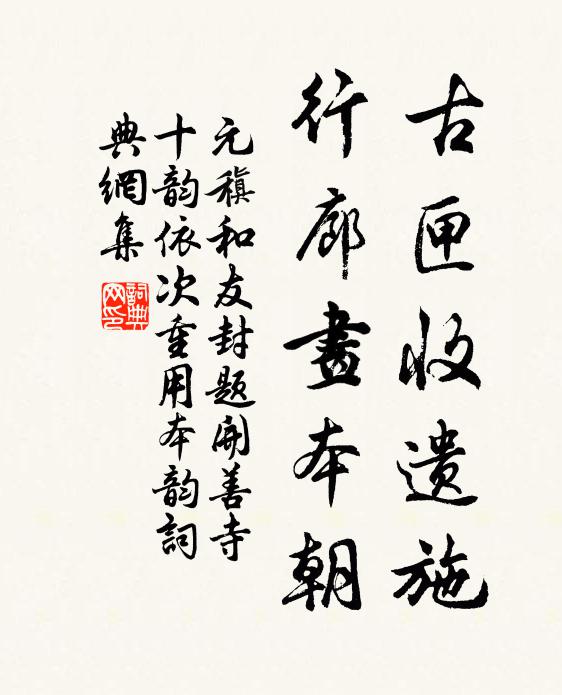 古匣收遗施
行廊畫本朝
元稹和友封题開善寺
十韵依次重用本韵詞
典網集
詞典網印